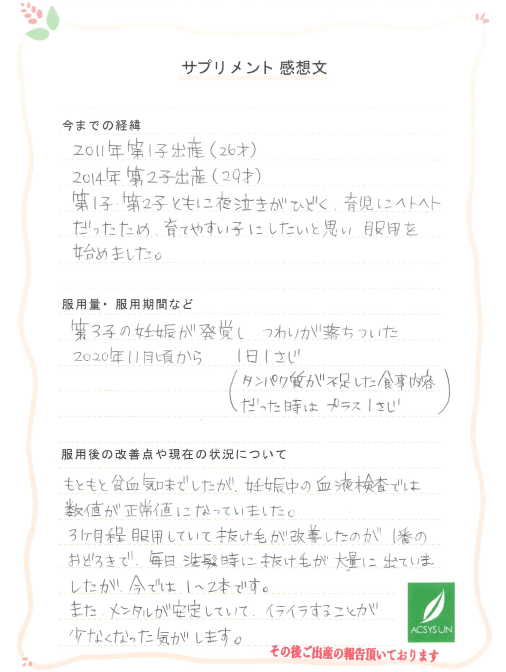 サプリメント 感想文
今までの経緯
2011年第1子出産(26才)
2014年第2子出産(29才)
第1子 第2子ともに夜泣きがひどく、育児にヘトヘト
だったため、育てやすい子にしたいと思い 服用を
始めました。
服用量・服用期間など
第3子の妊娠が発覚し つわりが落ちついた
2020年11月頃から 1日1さじ
(タンパク質が不足した食事内容
だった時は プラス1さじ)
服用後の改善点や現在の状況について
もともと貧血気味でしたが、妊娠中の血液検査では
数値が正常値になっていました。
3ケ月程 服用していて抜け毛が改善したのが 1番の
おどろきで、毎日洗髪時に抜け毛が大量に出ていま
したが、今では1〜2本です。
また、メンタルが安定していて、イライラすることが
少なくなった気がします。
ACSYSUN
その後ご出産の報告頂いております